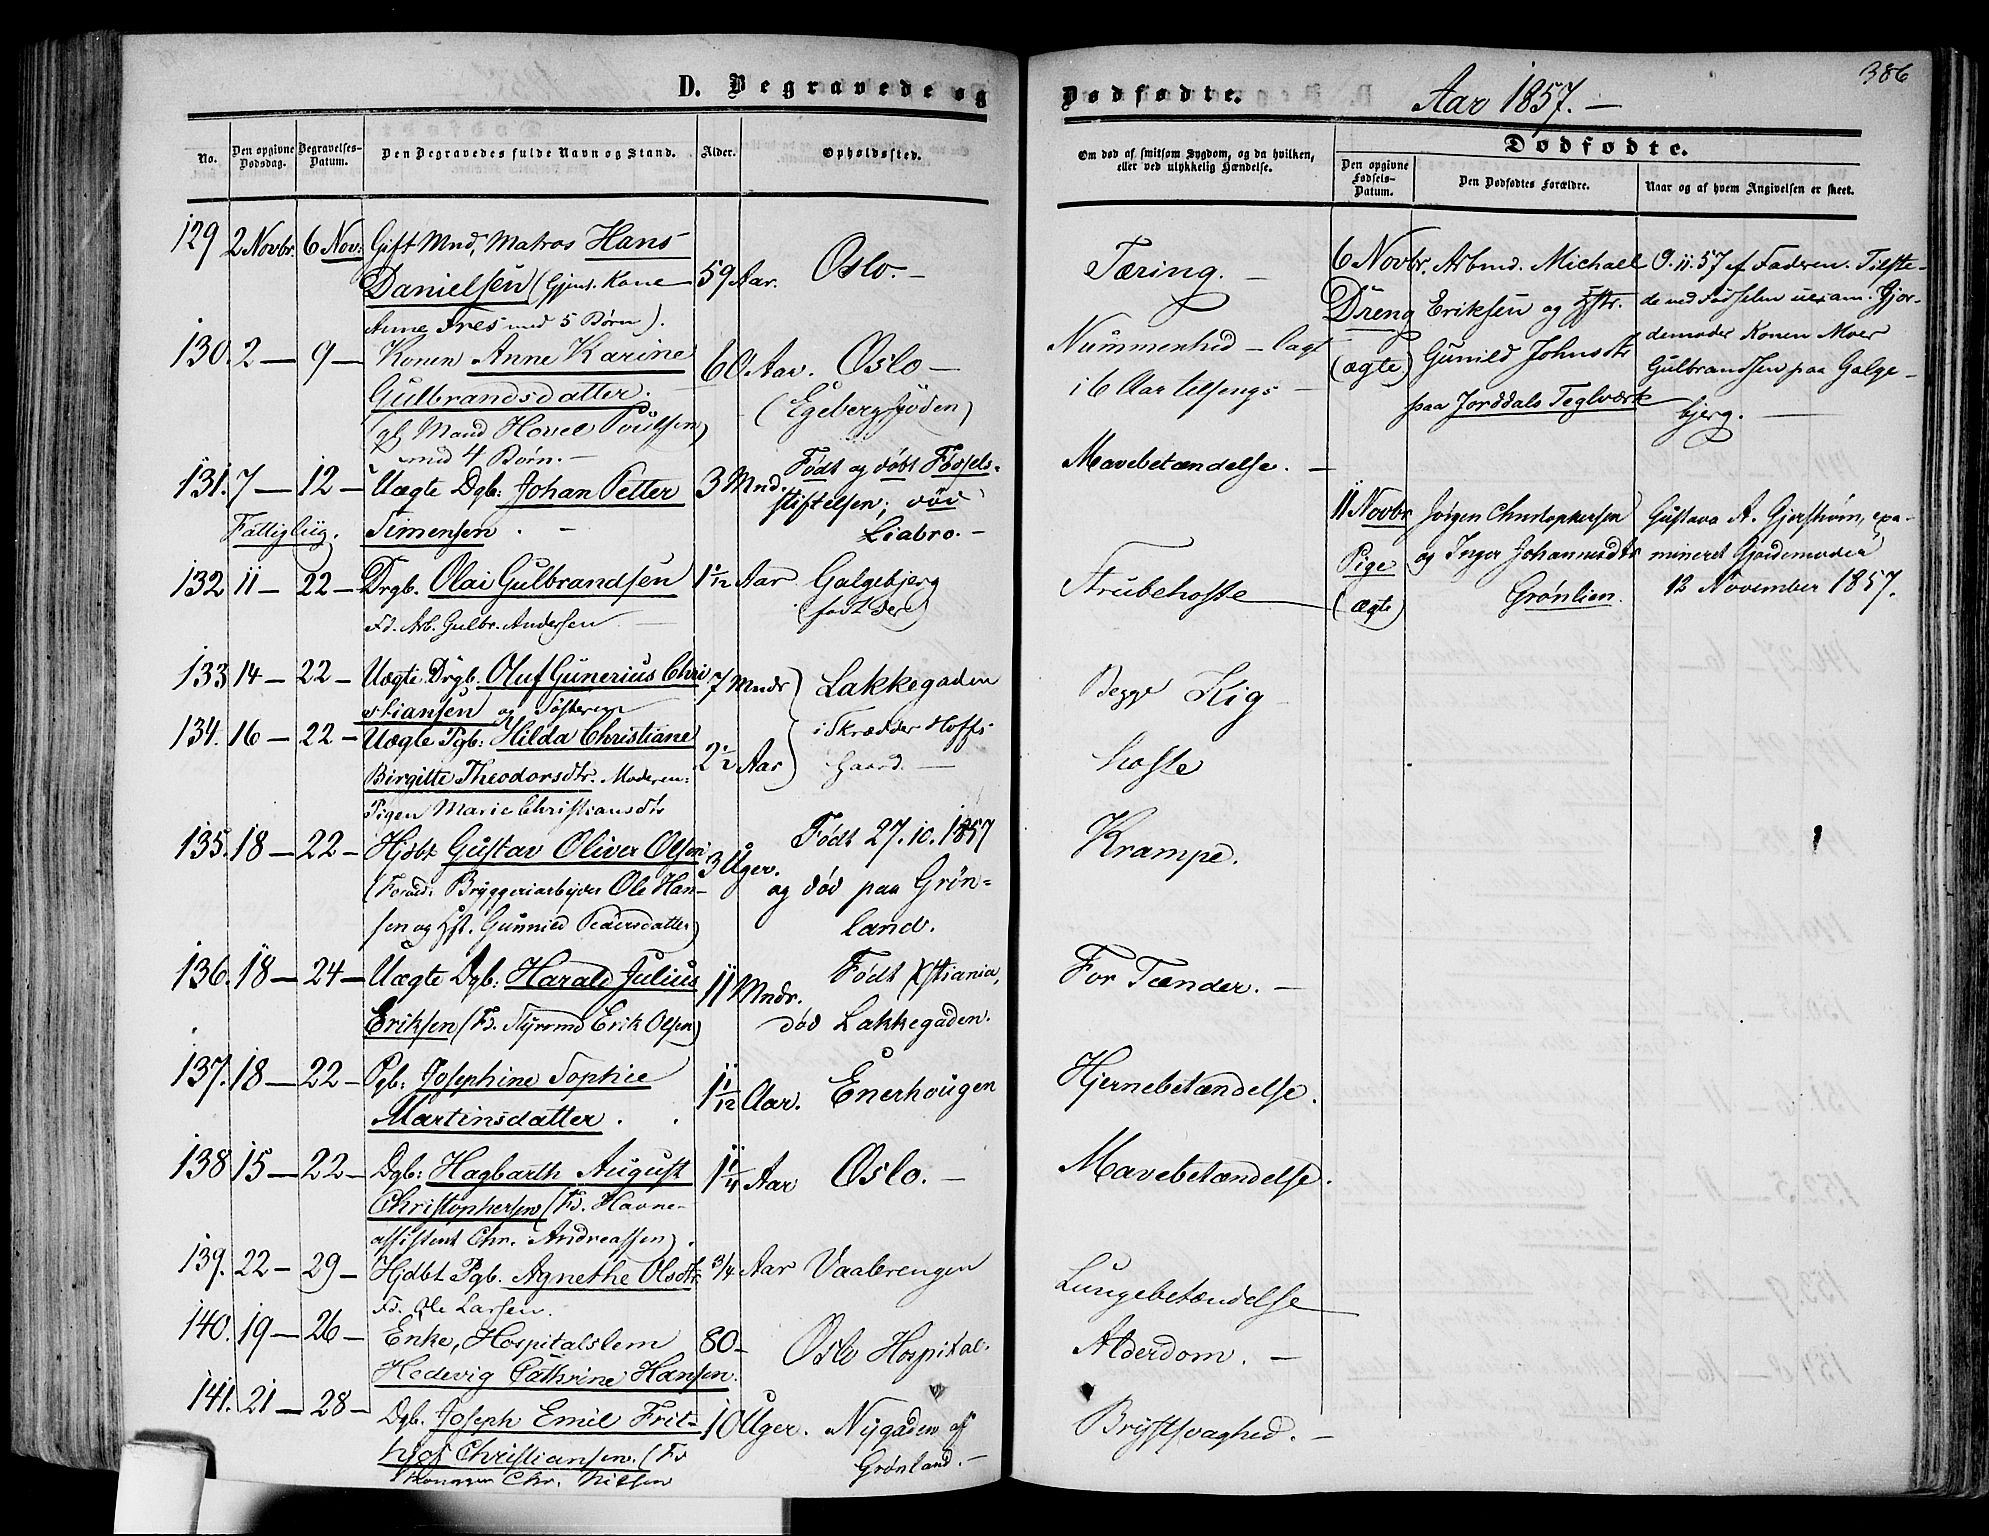 386
D. Begravede og
Dødfødte.
Aar 1857. —
Dødfødte.
No.
Den opgivne Dødsdag.
Begravelses-Datum.
Den Begravedes fulde Navn og Stand.
Alder.
Opholdssted.
Om død af smitsom Sygdom, og da hvilken,
eller ved ulykkelig Hændelse.
Den opgivne Fødsels-Datum.
Den Dødfødtes Forældre.
Naar og af hvem Angivelsen er skeet.
129 2 Novbr. 6 Nov. Gift Mnd, Matros Hans
Danielsen (Gjens. Kone 59 Aar. Oslo. — Tæring. —
Anne Fres med 5 Børn).
130. 2 — 9 — Konen Anne Karine 60 Aar. Oslo — Nummenhed — lagt
Gulbrandsdatter. (Egebergfjöden) i 6 Aar tilsengs —
(gl. Mand Hovel Poulsen)
med 4 Børn. —
131. 7 — 12 — Uægte Dgb: Johan Petter 3 Mnd. Født og døbt Fødsels- Mavebetændelse. —
Fattigliig. Simensen. — stiftelsen; død
Liabro. —
132 11 — 22 — Drgb. Olai Gulbrandsen 1 1/12 Aar Galgebjerg Strubehoste
Fd. Arb. Gulbr. Andersen — (født der)
133 14 — 22 — Uægte Drgb. Oluf Gunerius Chri 7 Mndr Lakkegaden Begge Kig
stiansen og Søsteren
134. 16 — 22 — Uægte Pgb: Hilda Christiane 2 1/2 Aar i Skrædder Hoffs Gaard. — hoste
Birgitte Theodorsdtr. Moderen:
Pigen Marie Christiansdtr
135. 18 — 22 — Hjdbt Gustav Oliver Olsen 3 Uger. Født 27.10.1857 Krampe.
(Foræld: Bryggeriarbejder Ole Han- og død paa Grøn-
sen og Hst. Gunnild Pedersdatter) land.
136. 18 — 24 — Uægte Dgb: Harald Julius 11 Mndr. Født Xstiania, For Tænder. —
Eriksen (Fd. Styrmd Erik Olsen) død Lakkegaden.
137. 18 — 22 — Pgb: Josephine Sophie 1 1/12 Aar. Enerhougen Hjernebetændelse.
Martinsdatter.
138 15 — 22 — Dgb: Hagbarth August 1 1/4 Aar Oslo. — Mavebetændelse.
Christophersen (Fd. Havne-
assistent Chr. Andreassen).
139. 22 — 29 — Hjdbt Pgb. Agnethe Olsdtr 3/4 Aar Vaalerengen Lungebetændelse
Fd. Ole Larsen.
140. 19 — 26 — Enke, Hospitalslem 80 — Oslo Hospital. Alderdom. —
Hedevig Cathrine Hansen.
141. 21 — 28 — Dgb. Joseph Emil Frit- 10 Uger. Nygaden af Brystsvaghed. —
hjof Christiansen. (Fd Grønland. —
Chr. Nilsen
6 Novbr. Arbmd. Michael 9.11.57 af Faderen. Tilste-
Dreng Eriksen og Hstr. de ved Fødselen uexam. Gjor-
(ægte) Gunild Johnsdtr demoder Konen Moer
paa Jorddals Teglværk Gulbrandsen paa Galge-
bjerg. —
11 Novbr Jörgen Christophersen Gustava A. Gjerstrøm, exa-
Pige og Inger Johannesdtr mineret Gjordemoder
(ægte) Grønlien. 12 November 1857.